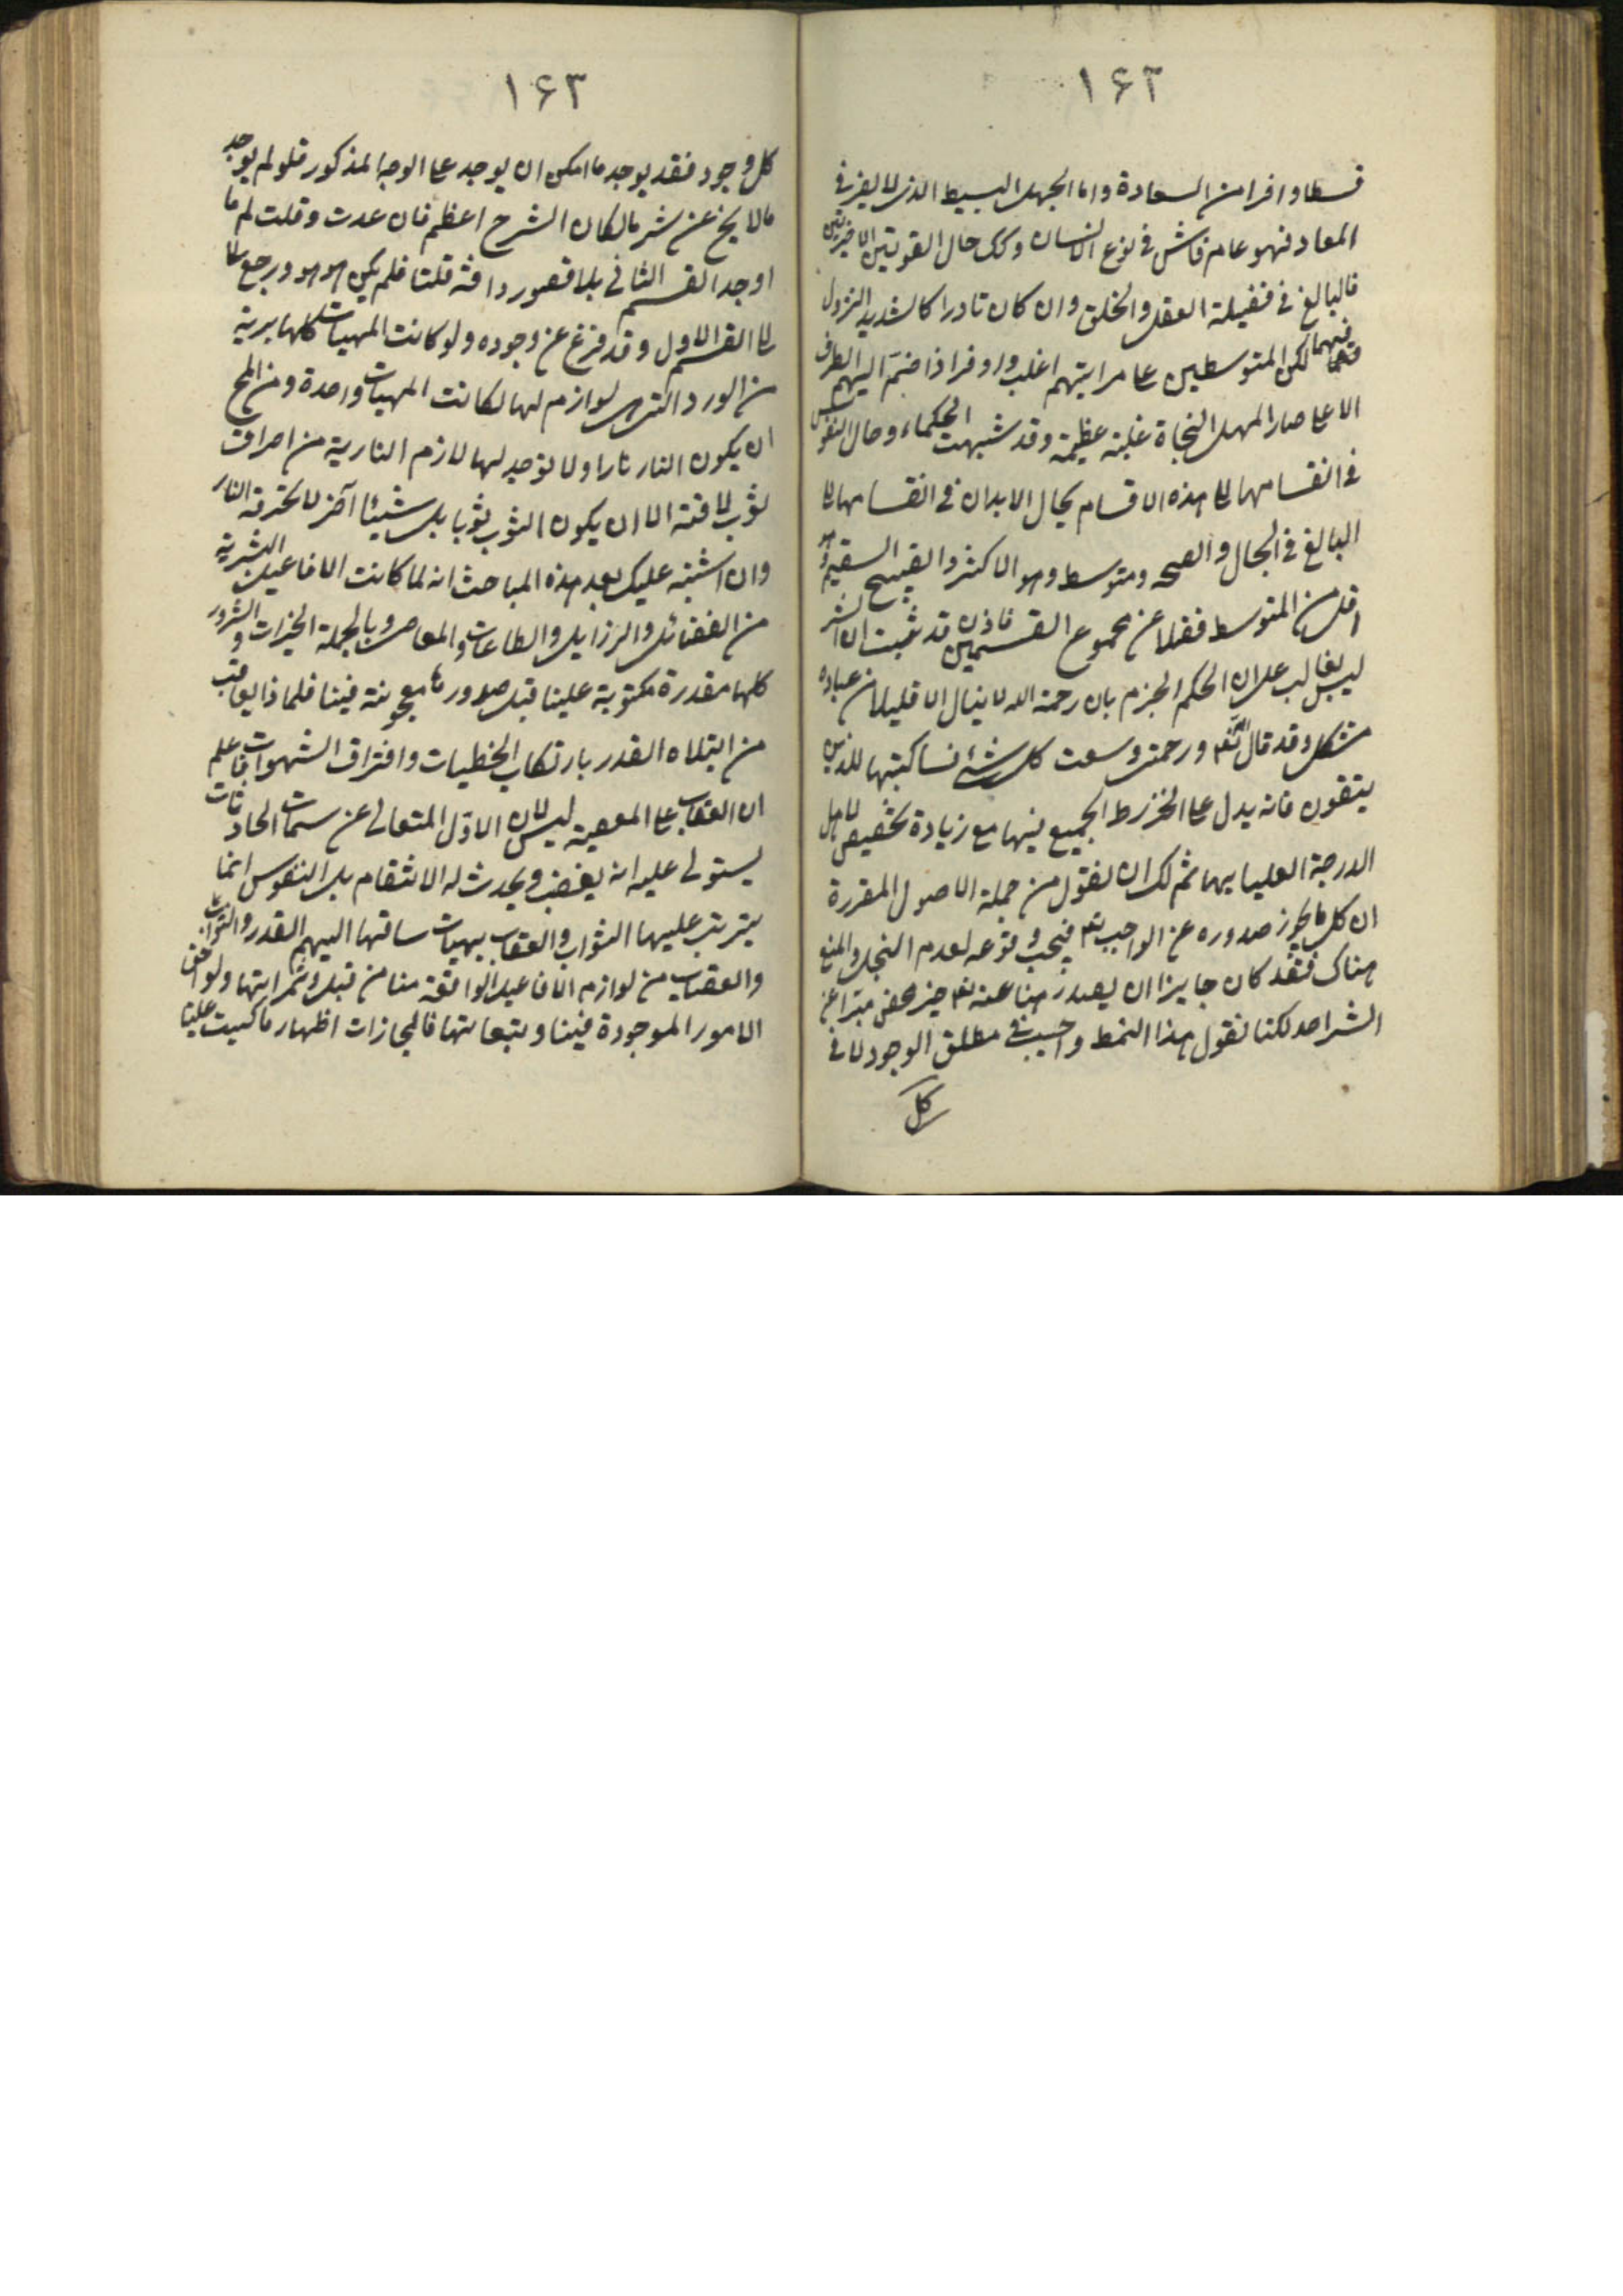 ١٦٢
قسطا وافرا من السعادة واما الجهل البسيط الذى لا يضر فى
المعاد فهو عام فاش فى نوع الانسان وكك حال القوتين الاخيرتين
فالبالغ فى فضيلة العقل والخلق وان كان نادرا كالشديد النزول
فيهما لكن المتوسطين على مراتبهم اغلب واوفر اذا ضم اليهم الطرف
الاعلى صار لاهل النجاة غلبة عظيمة وقد شبهت الحكماء وحال النفوس
فى انقسامها الى هذه الاقسام بحال الابدان فى انقسامها الى
البالغ فى الجمال والصحه ومتوسط وهو الاكثر والقبيح السقيم وهو
اقل من المتوسط فضلا عن مجموع القسمين فاذن قد ثبت ان الشر
ليس بغالب على ان الحكم الجزم بان رحمة الله لا ينال الا قليلا من عباده
مشكل وقد قال الله تعه ورحمتى وسعت كل شئ فساكتبها للذين
يتقون فانه يدل على الجميع فيها مع زيادة تخصيص لاهل
الدرجة العليا بهما ثم لك ان تقول من جملة الاصول المقررة
ان كل ما يجوز صدوره عن الواجب تعه فيجب وقوعه لعدم البخل والمنع
هناك فقد كان جايزا ان يصدر هنا عنه تعه خير محض مبرا عن
الشر اصلا لكنا نقول هذا النمط واجب فى مطلق الوجود لا فى
كل
١٦٣
كل وجود فقد يوجد ما امكن ان يوجد على الوجه المذكور فلو لم يوجد
ما لا يخ عن شر ما لكان الشر ح اعظم فان عدت وقلت لم ما
اوجد القسم الثانى بلا قصور وافة قلنا فلم يكن هو هو ورجع
الى القسم الاول وقد فرغ عن وجوده ولو كانت المهيات كلها برية
من لوازم لها لكانت المهيات واحدة ومن المح
ان يكون النار نارا ولا توجد لها لازم النارية من احراق
ثوب لاقته الا ان يكون الثوب ثوبا بل شيئا آخر لا تحترقه النار
وان اشتبه عليك بعد هذه المباحث انه لما كانت الافاعيل البشرية
من الفضائل والرزايل والطاعات والمعاصى وبالجملة الخيرات والشرور
كلها مقدرة مكتوبة علينا قبل صدورها معجونة فينا فلماذا يعاقب
من ابتلاه القدر بارتكاب الخطيات واقتراف الشهوات فاعلم
ان العقاب على المعصية ليس لان الاوّل المتعالى عن سمات الحادثات
يستولى عليه انه يغضب ويحدث له الانتقام بل النفوس انما
يترتب عليها الثواب والعقاب بهيات ساقتها اليهم القدر والثواب
والعقاب من لوازم الافاعيل الواقعة منا من قبل وثمراتها ولواحق
الامور الموجودة فينا وتبعاتها فالمجازات اظهار ما كسبت علينا